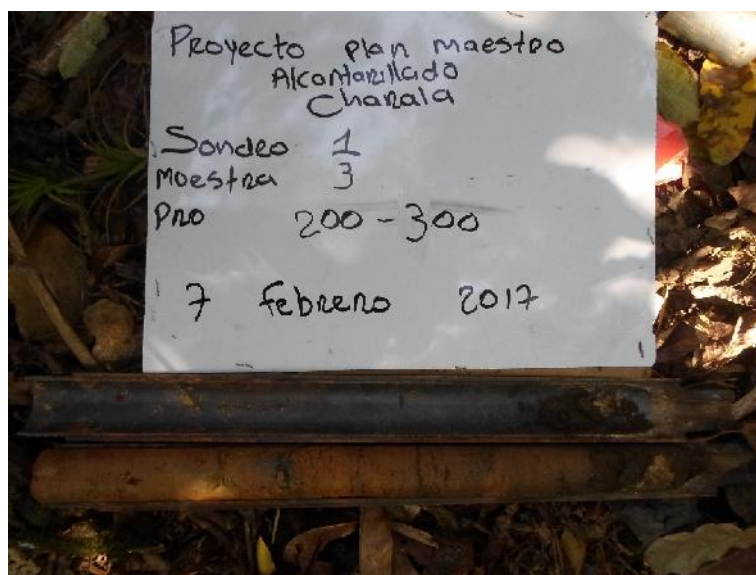 Proyecto plan maestro
Alcantarillado
Charala
Sondeo 1
Moestra 3
Pro 200 - 300
7 febrero 2017